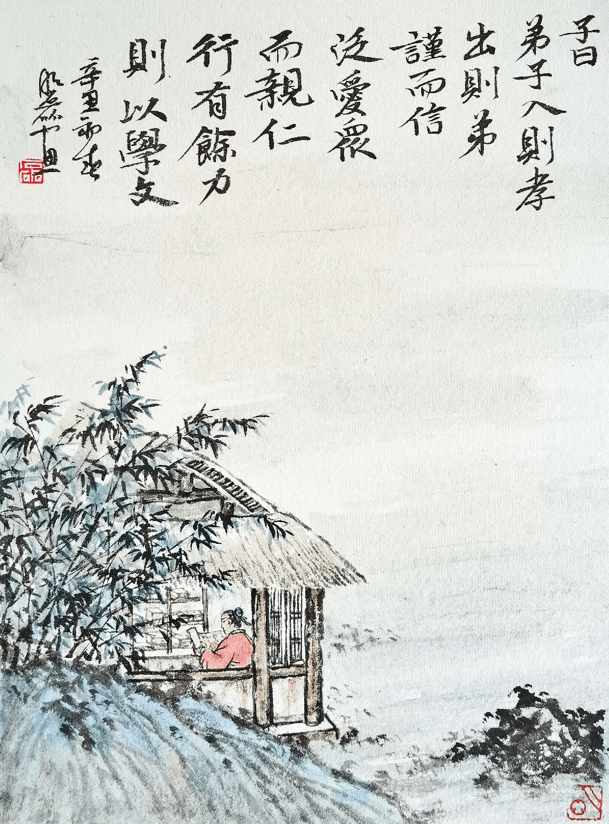 子曰
弟子入則孝
出則弟
謹而信
泛愛眾
而親仁
行有餘力
則以學文
辛丑初春